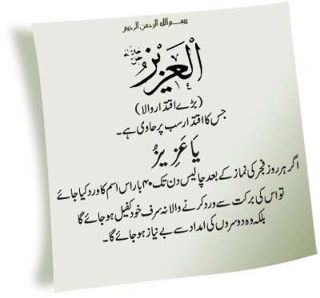 بسم اللہ الرحمن الرحیم
العزیز جل جلالہ
(بڑے اقتدار والا)
جس کا اقتدار سب پر حاوی ہے۔
یَا عَزِیزُ
اگر ہر روز فجر کی نماز کے بعد چالیس دن تک ۴۰ بار اس اسم کا ورد کیا جائے
تو اس کی برکت سے ورد کرنے والا نہ صرف خود کفیل ہو جائے گا
بلکہ وہ دوسروں کی امداد سے بے نیاز ہو جائے گا۔